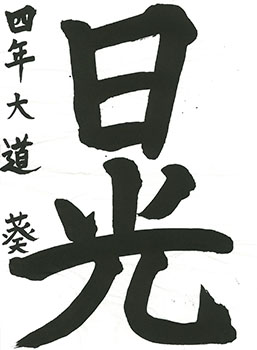 日光
四年大道葵